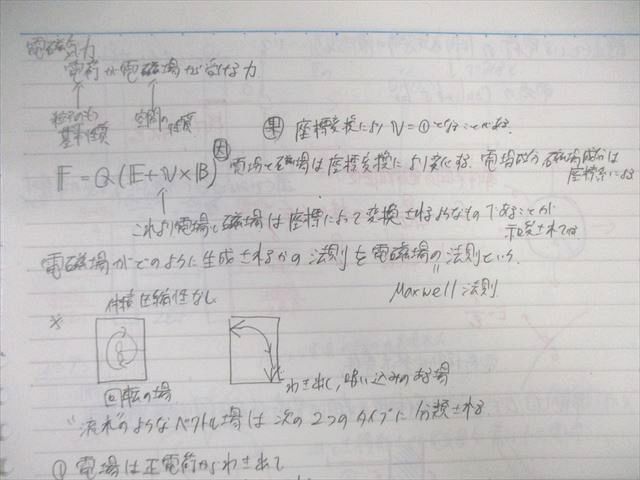 電磁気力
電荷が電磁場から受ける力
粒子のもつ
基本性質
空間の性質
果 座標変換により V=0 となることがある。
F = Q(E+V×B)
因 電場と磁場は座標変換により変じる。電場成分、磁場成分は
座標系による
これより電場と磁場は座標によって変換されるようなものであることが
示唆されている
電磁場がどのように生成されるかの法則を電磁場の法則という。
Maxwell 法則
体積圧縮性なし
*
回転の場
わき出し、吸い込みのある場
"流水"のようなベクトル場は次の2つのタイプに分類される
① 電場は正電荷からわき出て